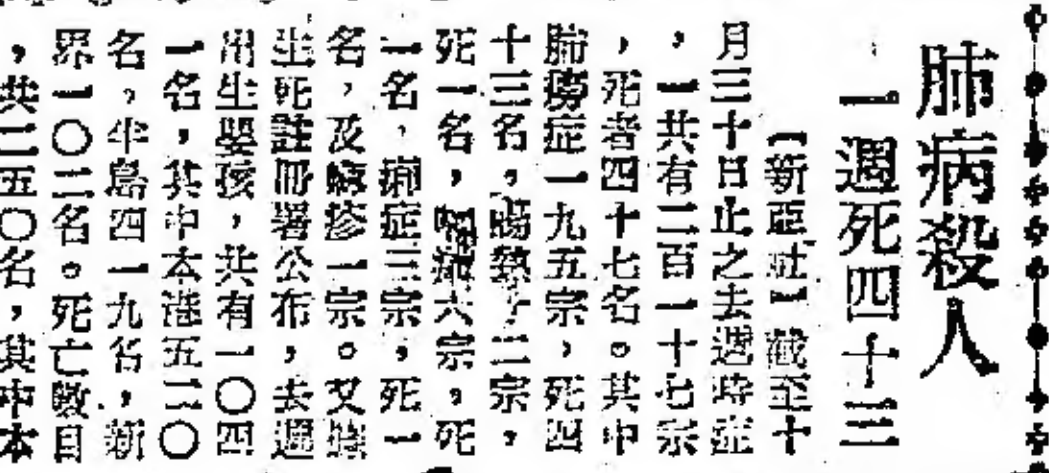 肺病殺人
一週死四十三
【新亞社】截至十
月三十日止之去週時症
,一共有二百一十七宗
,死者四十七名。其中
肺癆症一九五宗,死四
十三名。腸熱疒二宗,
死一名,六宗,死
一名,痢症三宗,死一
名,及痲疹一宗。又據
生死註冊署公布,去週
出生嬰孩,共有一〇四
一名,其中本港五二〇
名。半島四一九名,新
界一〇二名。死亡數目
,共二五〇名,其中本